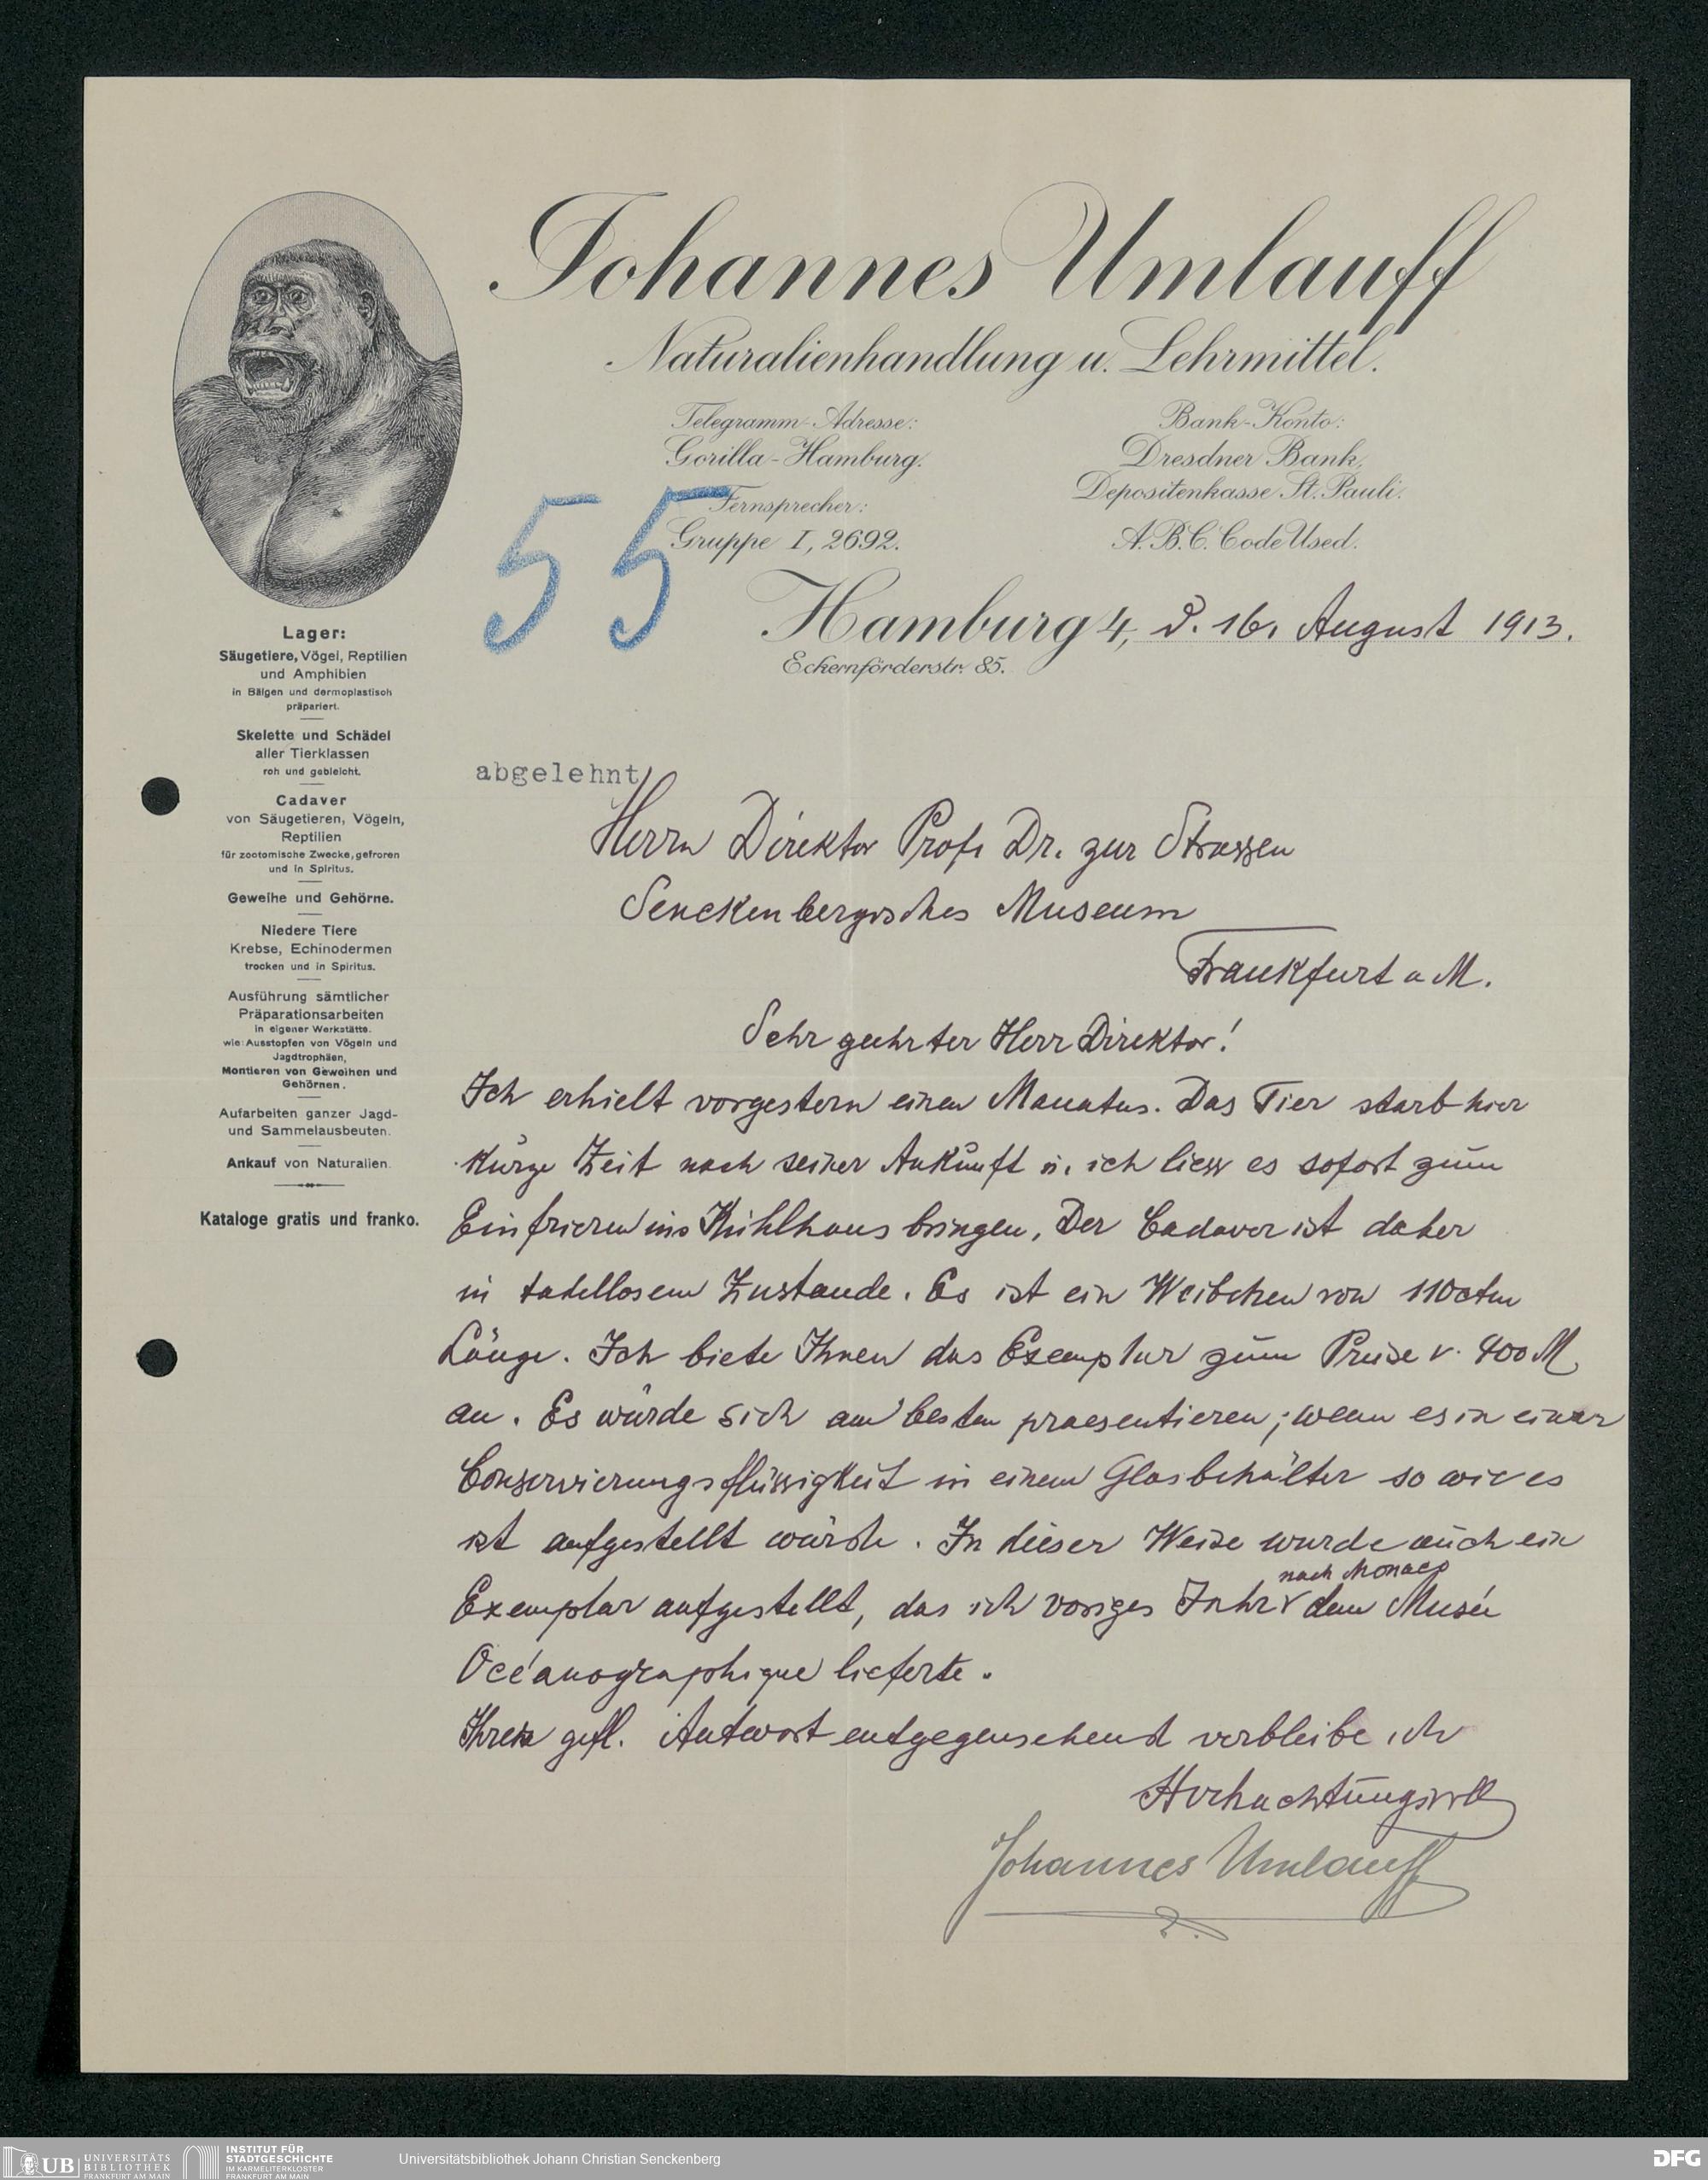 Johannes Umlauff
Naturalienhandlung u. Lehrmittel.
Telegramm-Adresse:
Gorilla-Hamburg.
Fernsprecher:
Gruppe I, 2692.
Bank-Konto:
Dresdner Bank,
Depositenkasse St. Pauli.
A.B.C. Code Used.
55
Hamburg 4, d. 16. August 1913.
Eckernförderstr. 85.
Lager:
Säugetiere, Vögel, Reptilien
und Amphibien
in Bälgen und dermoplastisch
präpariert.
Skelette und Schädel
aller Tierklassen
roh und gebleicht.
Cadaver
von Säugetieren, Vögeln,
Reptilien
für zootomische Zwecke, gefroren
und in Spiritus.
Geweihe und Gehörne.
Niedere Tiere
Krebse, Echinodermen
trocken und in Spiritus.
Ausführung sämtlicher
Präparationsarbeiten
in eigener Werkstätte.
wie: Ausstopfen von Vögeln und
Jagdtrophäen,
Montieren von Geweihen und
Gehörnen.
Aufarbeiten ganzer Jagd-
und Sammelausbeuten.
Ankauf von Naturalien.
Kataloge gratis und franko.
abgelehnt
Herrn Direktor Prof. Dr. zur Strassen
Senckenbergisches Museum
Frankfurt a M.
Sehr geehrter Herr Direktor!
Ich erhielt vorgestern einen Manatus. Das Tier starb hier
kurze Zeit nach seiner Ankunft u. ich liess es sofort zum
Einfrieren ins Kühlhaus bringen. Der Cadaver ist daher
in tadellosem Zustande. Es ist ein Weibchen von 110 ctm
Länge. Ich biete Ihnen das Exemplar zum Preise v. 400 M
an. Es würde sich am besten praesentieren, wenn es in einer
Conservierungsflüssigkeit in einem Glasbehälter so wie es
ist aufgestellt würde. In dieser Weise wurde auch ein
Exemplar aufgestellt, das ich voriges Jahr nach Monaco dem Musée
Océanographique lieferte.
Ihrer gefl. Antwort entgegensehend verbleibe ich
Hochachtungsvoll
Johannes Umlauff
UB UNIVERSITÄTS
BIBLIOTHEK
FRANKFURT AM MAIN
INSTITUT FÜR
STADTGESCHICHTE
IM KARMELITERKLOSTER
FRANKFURT AM MAIN
Universitätsbibliothek Johann Christian Senckenberg
DFG